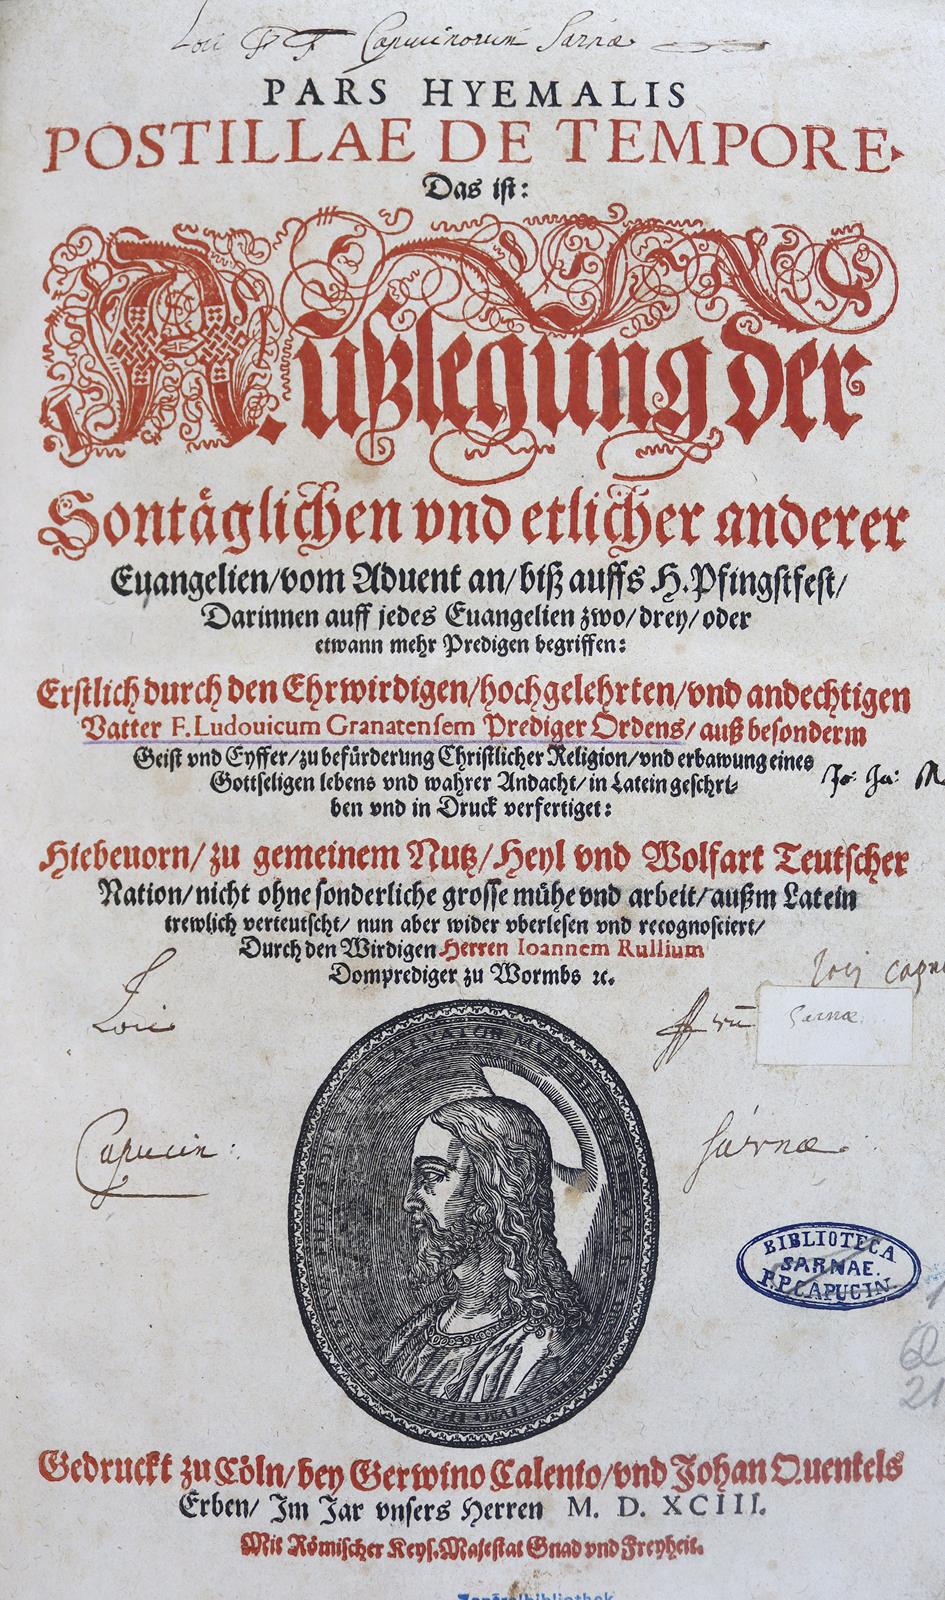 Loci Capucinorum Sarnæ
PARS HYEMALIS
POSTILLAE DE TEMPORE.
Das ist:
Außlegung der
Sontåglichen vnd etlicher anderer
Euangelien/vom Aduent an/biß auffs H. Pfingstfest/
Darinnen auff jedes Euangelien zwo/drey/oder
etwann mehr Predigen begriffen:
Erstlich durch den Ehrwirdigen/hochgelehrten/vnd andechtigen
Vatter F. Ludouicum Granatensem Prediger Ordens/auß besonderm
Geist vnd Eyffer/zu befürderung Christlicher Religion/vnd erbawung eines
Gottseligen lebens vnd wahrer Andacht/in Latein geschri-
ben vnd in Druck verfertiget:
Hiebeuorn/zu gemeinem Nutz/Heyl vnd Wolfart Teutscher
Nation/nicht ohne sonderliche grosse mühe vnd arbeit/außm Latein
trewlich verteutscht/nun aber wider vberlesen vnd recognosciert/
Durch den Wirdigen Herren Ioannem Rullium
Domprediger zu Wormbs ꝛc.
Loci
Loci
Sarnæ
Capucin:
Sarnæ
BIBLIOTECA
SARNAE.
P.P. CAPUCIN.
62
21
Gedruckt zu Cöln/bey Gerwino Calenio/vnd Johan Quentels
Erben/Im Jar vnsers Herren M. D. XCIII.
Mit Römischer Keys. Majestat Gnad vnd Freyheit.
Zentralbibliothek